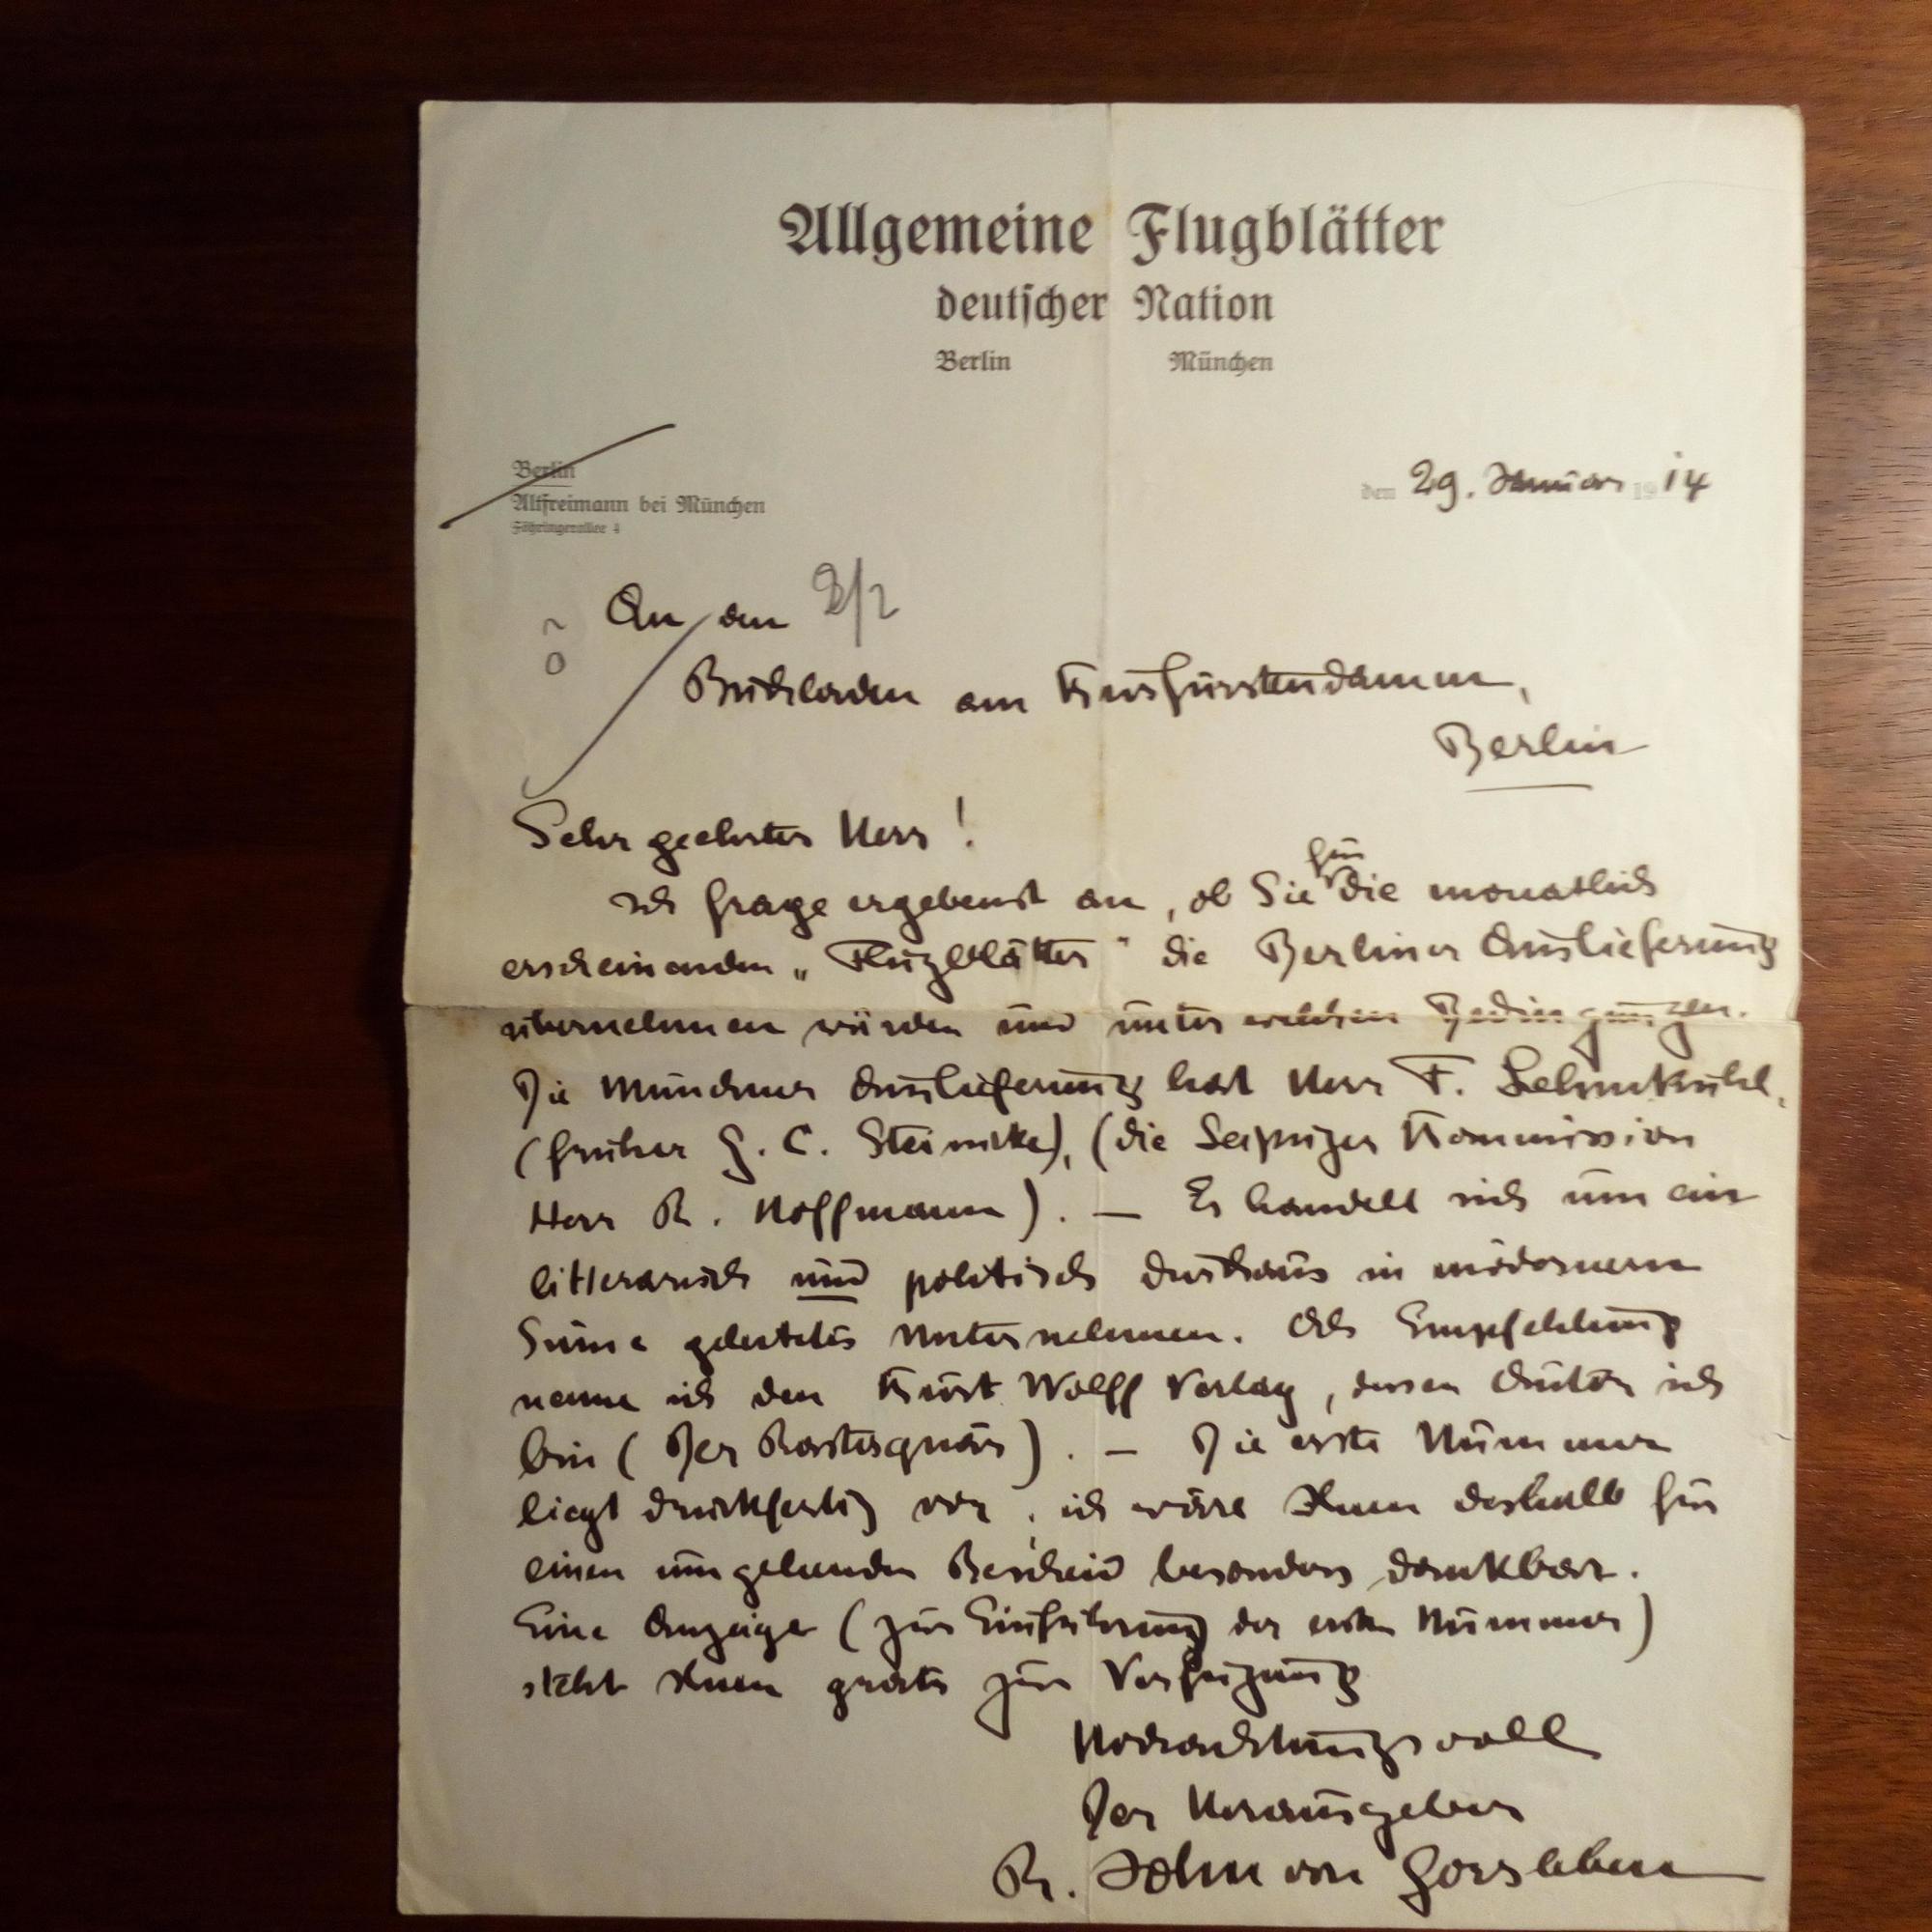 Allgemeine Flugblätter
deutscher Nation
Berlin München
Berlin
Altfreimann bei München
Föhringerallee 4
den 29. Januar 1914
An den 2/2
Buchladen am Kurfürstendamm,
Berlin
Sehr geehrter Herr!
für
Ich frage ergebenst an, ob Sie die monatlich
erscheinenden „Flugblätter" die Berliner Auslieferung
übernehmen würden und unter welchen Bedingungen.
Die Münchner Auslieferung hat Herr F. Lehmkuhl,
(früher G. C. Steinicke), (die Leipziger Kommission
Herr R. Hoffmann). — Es handelt sich um ein
litterarisch und politisch durchaus in modernem
Sinne geleitetes Unternehmen. Als Empfehlung
nenne ich den Kurt Wolff Verlag, dessen Autor ich
bin (Der Rastaquär). — Die erste Nummer
liegt druckfertig vor, ich wäre Ihnen deshalb für
einen umgehenden Bescheid besonders dankbar.
Eine Anzeige (zur Einführung der ersten Nummer)
steht Ihnen gratis zur Verfügung
Hochachtungsvoll
Der Herausgeber
R. John von Gorsleben